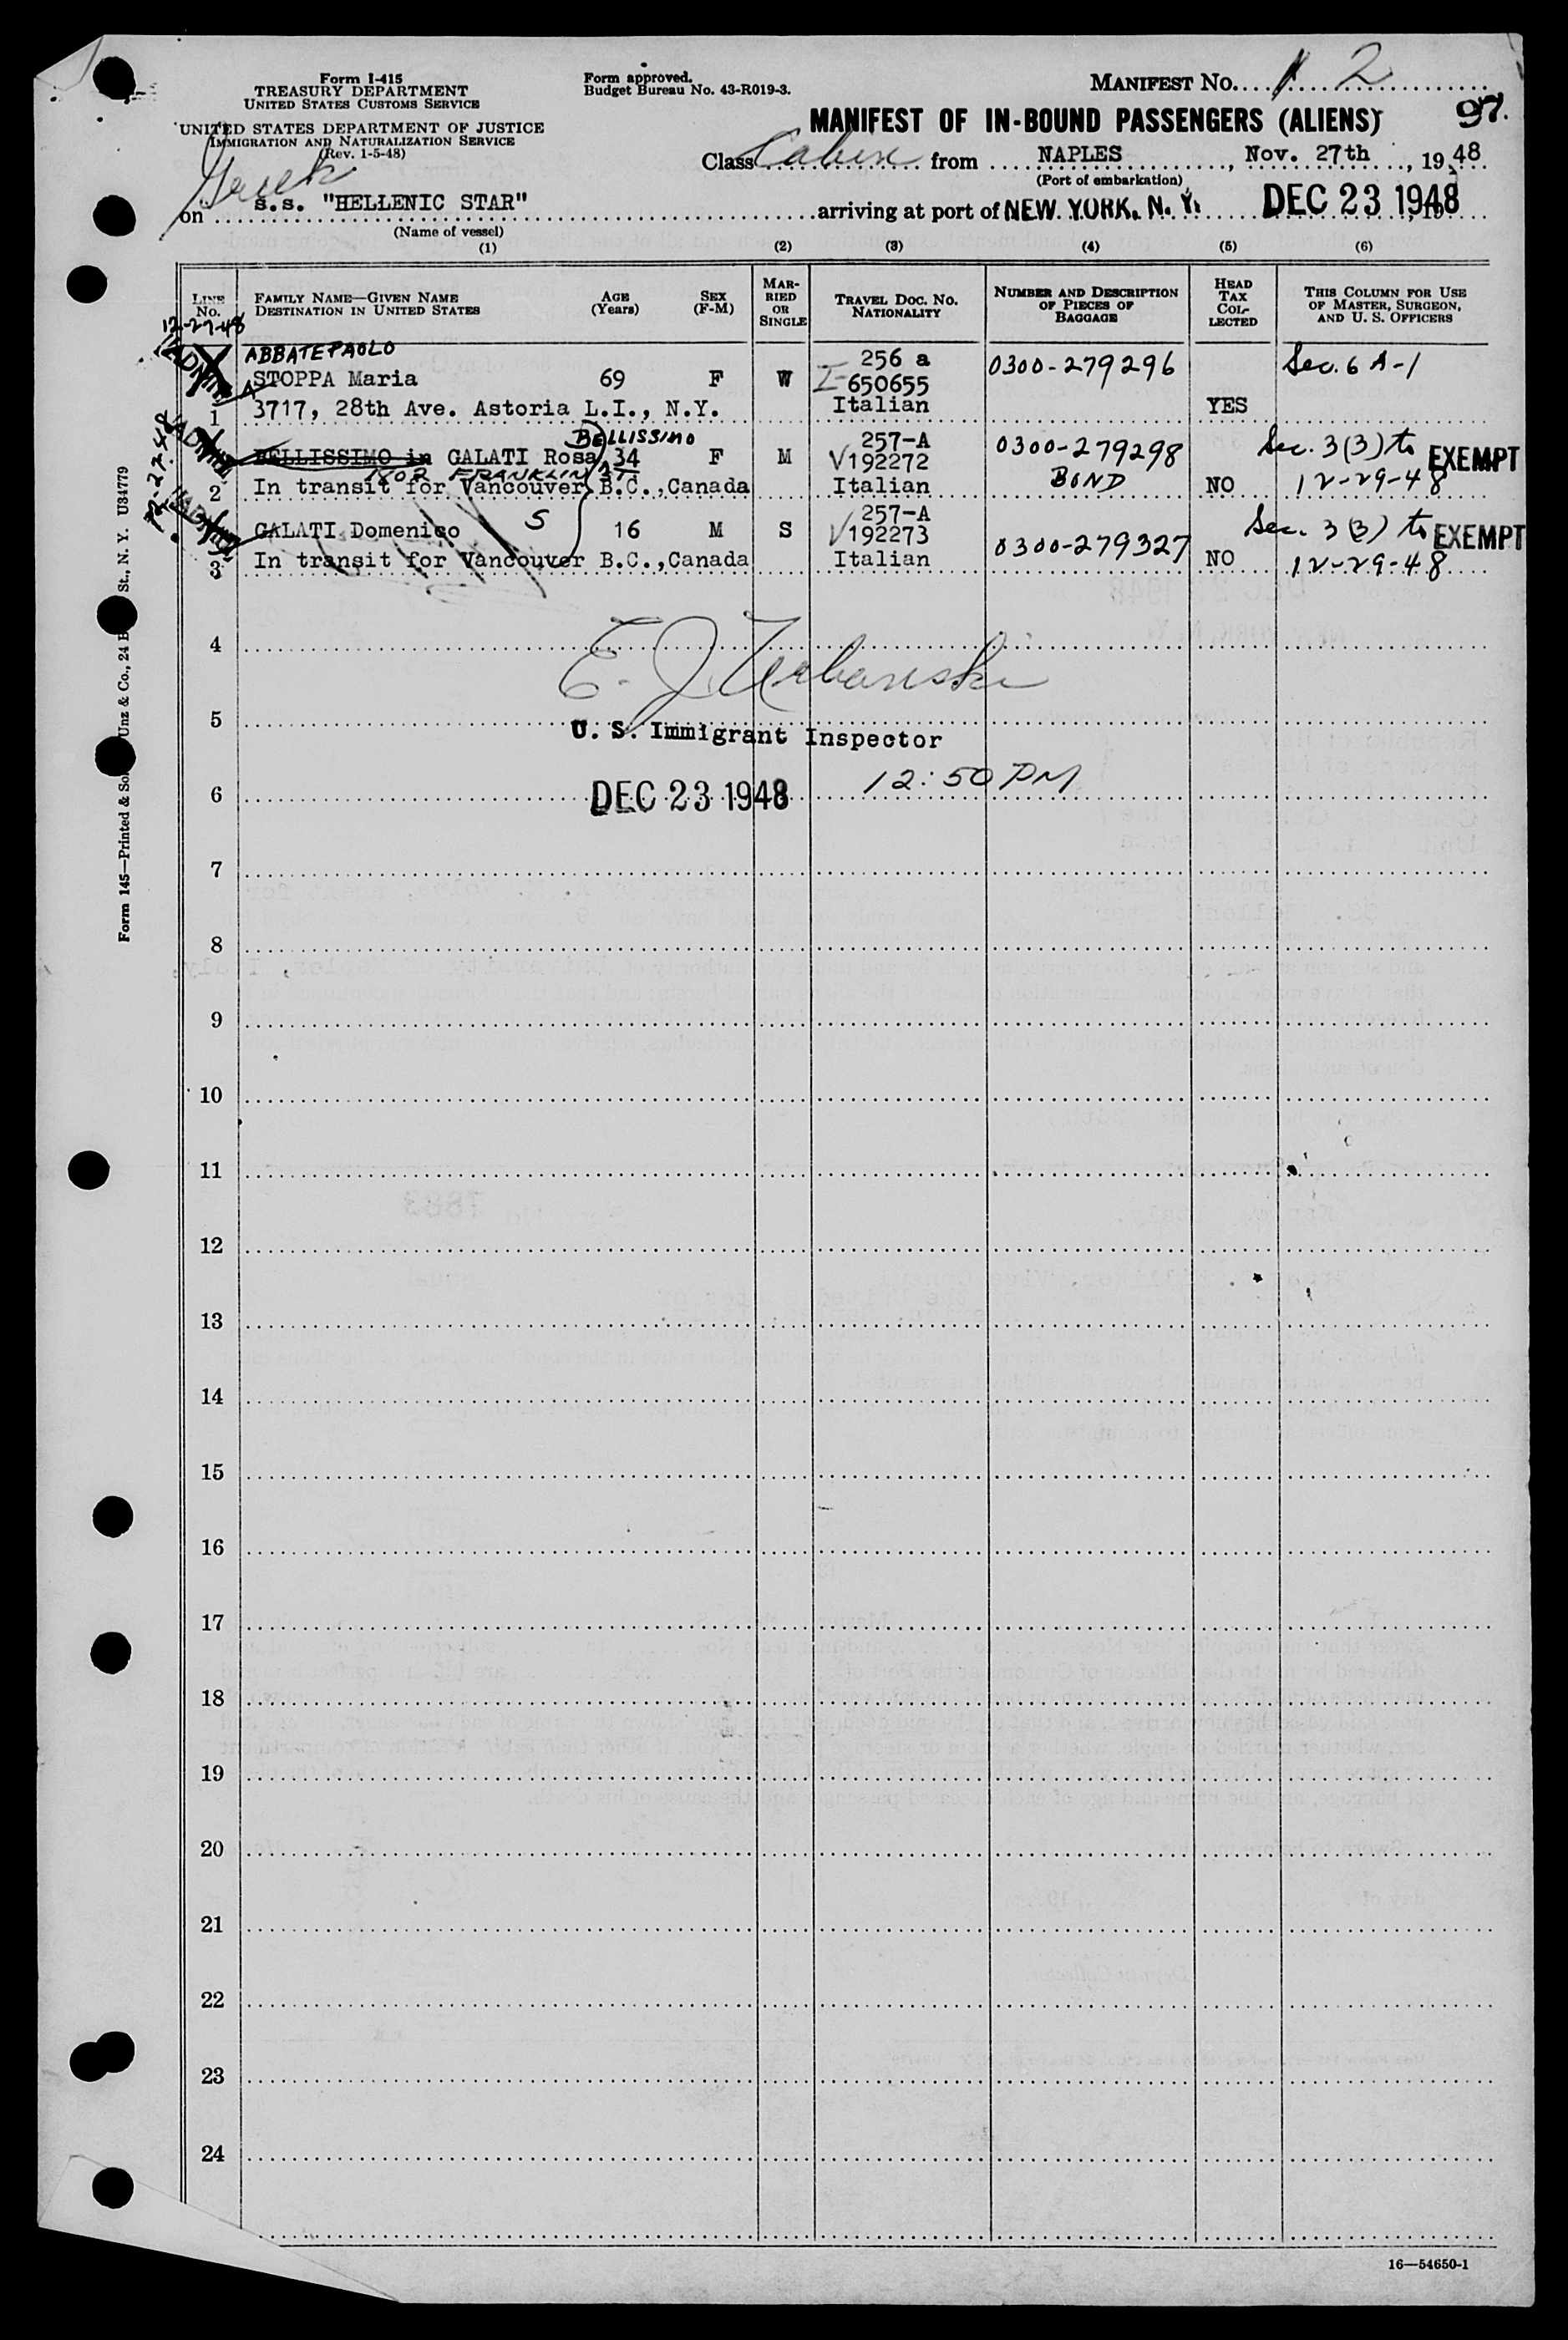 Form I-415
TREASURY DEPARTMENT
UNITED STATES CUSTOMS SERVICE
UNITED STATES DEPARTMENT OF JUSTICE
IMMIGRATION AND NATURALIZATION SERVICE
(Rev. 1-5-48)
Form approved.
Budget Bureau No. 43-R019-3.
MANIFEST No. 2
97.
MANIFEST OF IN-BOUND PASSENGERS (ALIENS)
Class Cabin from NAPLES, Nov. 27th, 1948
(Port of embarkation)
Greek
on s.s. "HELLENIC STAR" arriving at port of NEW YORK, N. Y. DEC 23 1948
(Name of vessel)
(1) (2) (3) (4) (5) (6)
LINE No.
FAMILY NAME—GIVEN NAME
DESTINATION IN UNITED STATES
AGE (Years)
SEX (F-M)
MARRIED OR SINGLE
TRAVEL DOC. NO.
NATIONALITY
NUMBER AND DESCRIPTION OF PIECES OF BAGGAGE
HEAD TAX COLLECTED
THIS COLUMN FOR USE OF MASTER, SURGEON, AND U. S. OFFICERS
12-29-48
ABBATEPAOLO 256 a 0300-279296 Sec. 6 A-1
STOPPA Maria 69 F W I-650655
1 3717, 28th Ave. Astoria L.I., N.Y. Italian YES
BELLISSIMO 257-A 0300-279298 Sec. 3(3) to EXEMPT
BELLISSIMO in GALATI Rosa 34 F M V192272
FRANKLIN ST
2 In transit for Vancouver B.C., Canada Italian BOND NO 12-29-48
S 257-A Sec. 3(3) to EXEMPT
GALATI Domenico 16 M S V192273 0300-279327
3 In transit for Vancouver B.C., Canada Italian NO 12-29-48
4
E. J. Urbanski
5
U. S. Immigrant Inspector
6 DEC 23 1948 12:50 PM
7
8
9
10
11
12
13
14
15
16
17
18
19
20
21
22
23
24
16—54650-1
Form 145—Printed & So Unz & Co., 24 B St., N. Y. U34779